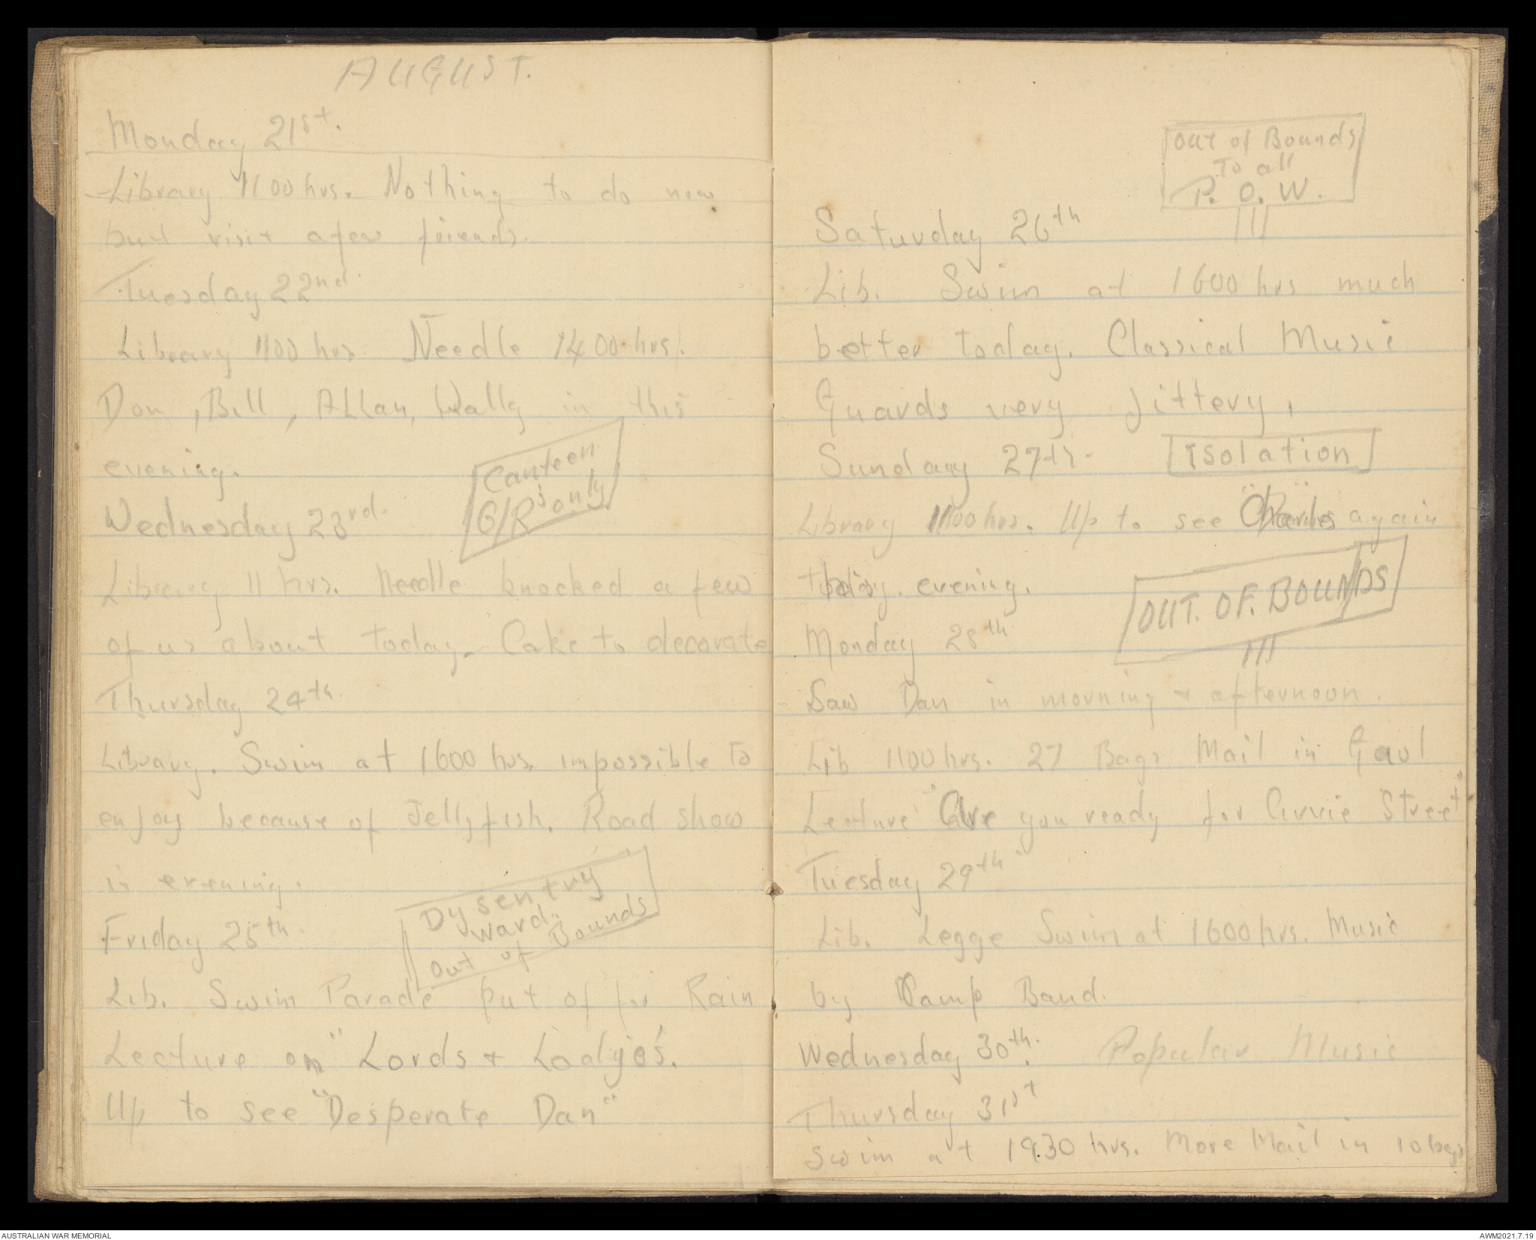 AUGUST.
Monday 21st.
Library 1100 hrs. Nothing to do now
but visit a few friends.
Tuesday 22nd
Library 1100 hrs Needle 1400 hrs.
Don, Bill, Allan, Wally in this
evening.
Canteen
G/R's only
Wednesday 23rd.
Library 11 hrs. Needle knocked a few
of us about today. Cake to decorate
Thursday 24th
Library. Swim at 1600 hrs. impossible to
enjoy because of Jellyfish. Road show
in evening.
Dysentry
Ward.
Out of Bounds
Friday 25th
Lib. Swim Parade put of for Rain
Lecture on "Lords & Lodge's.
Up to see "Desperate Dan"
Out of Bounds
To all
P. O. W.
!!!
Saturday 26th
Lib. Swim at 1600 hrs much
better today. Classical Music
Guards very Jittery,
Sunday 27th. Isolation
Library 1100 hrs. Up to see "Charles" again
evening.
OUT. OF. BOUNDS
!!!
Monday 28th
Saw Dan in morning & afternoon.
Lib 1100 hrs. 27 Bags Mail in Gaol
Lecture "Are you ready for Civvie Street"
Tuesday 29th
Lib. Legge Swim at 1600 hrs. Music
by Camp Band.
Wednesday 30th. Popular Music
Thursday 31st
Swim at 1930 hrs. More Mail in 10 bags
AUSTRALIAN WAR MEMORIAL
AWM2021.7.19